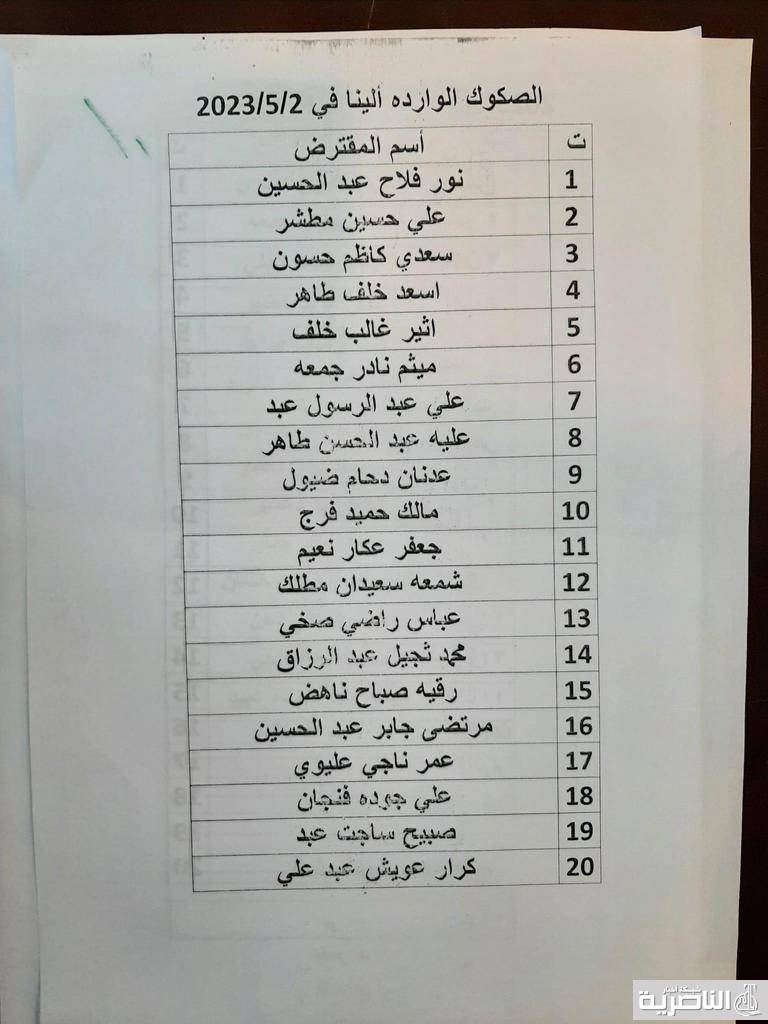 الصكوك الوارده ألينا في 2023/5/2
ت أسم المقترض
1 نور فلاح عبد الحسين
2 علي حسين مطشر
3 سعدي كاظم حسون
4 اسعد خلف طاهر
5 اثير غالب خلف
6 ميثم نادر جمعه
7 علي عبد الرسول عبد
8 عليه عبد الحسن طاهر
9 عدنان دحام ضيول
10 مالك حميد فرج
11 جعفر عكار نعيم
12 شمعه سعيدان مطلك
13 عباس راضي صخي
14 محمد ثجيل عبد الرزاق
15 رقيه صباح ناهض
16 مرتضى جابر عبد الحسين
17 عمر ناجي عليوي
18 علي جوده فنجان
19 صبيح ساجت عبد
20 كرار عويش عبد علي
شبكة أخبار
الناصرية